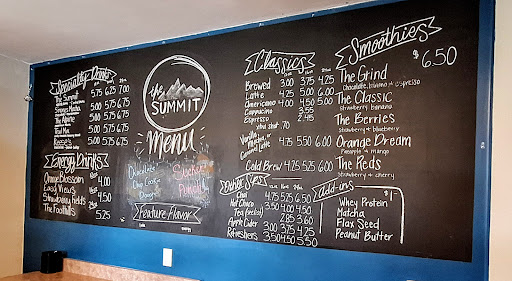 Specialty Drinks
The Summit 5.75 6.25 7.00
Matcha 5.00 5.75 6.75
The Alpine 5.00 5.75 6.75
5.00 5.75 6.75
5.00 5.75 6.75
Energy Drinks
Orange Blossom 4.00
East Views 4.50
Strawberry Fields 4.50
The Foothills 5.25
the
SUMMIT
Menu
Chocolate
Chip Cookie
Dough
Feature Flavor
Classics
Brewed 3.00 3.75 4.25
Latte 4.25 5.00 6.00
Americano 4.00 4.50 5.00
Cappuccino 3.55
Espresso 2.45
xtra shot .70
Vanilla, Mocha, or Caramel Latte 4.75 5.50 6.00
Cold Brew 4.75 5.25 6.00
Other Sips
Chai 4.75 5.75 6.50
Hot Choco 3.50 4.00 4.50
Tea (herbal) 2.85 3.60
Apple Cider 3.00 3.75 4.25
Refreshers 3.50 4.50 5.50
Smoothies
$6.50
The Grind
Chocolate, banana & espresso
The Classic
Strawberry banana
The Berries
Strawberry & blueberry
Orange Dream
Pineapple & mango
The Reds
Strawberry & cherry
add-ins
$1
Whey Protein
Matcha
Flax Seed
Peanut Butter